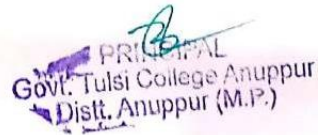 PRINCIPAL
Govt. Tulsi College Anuppur
Distt. Anuppur (M.P.)